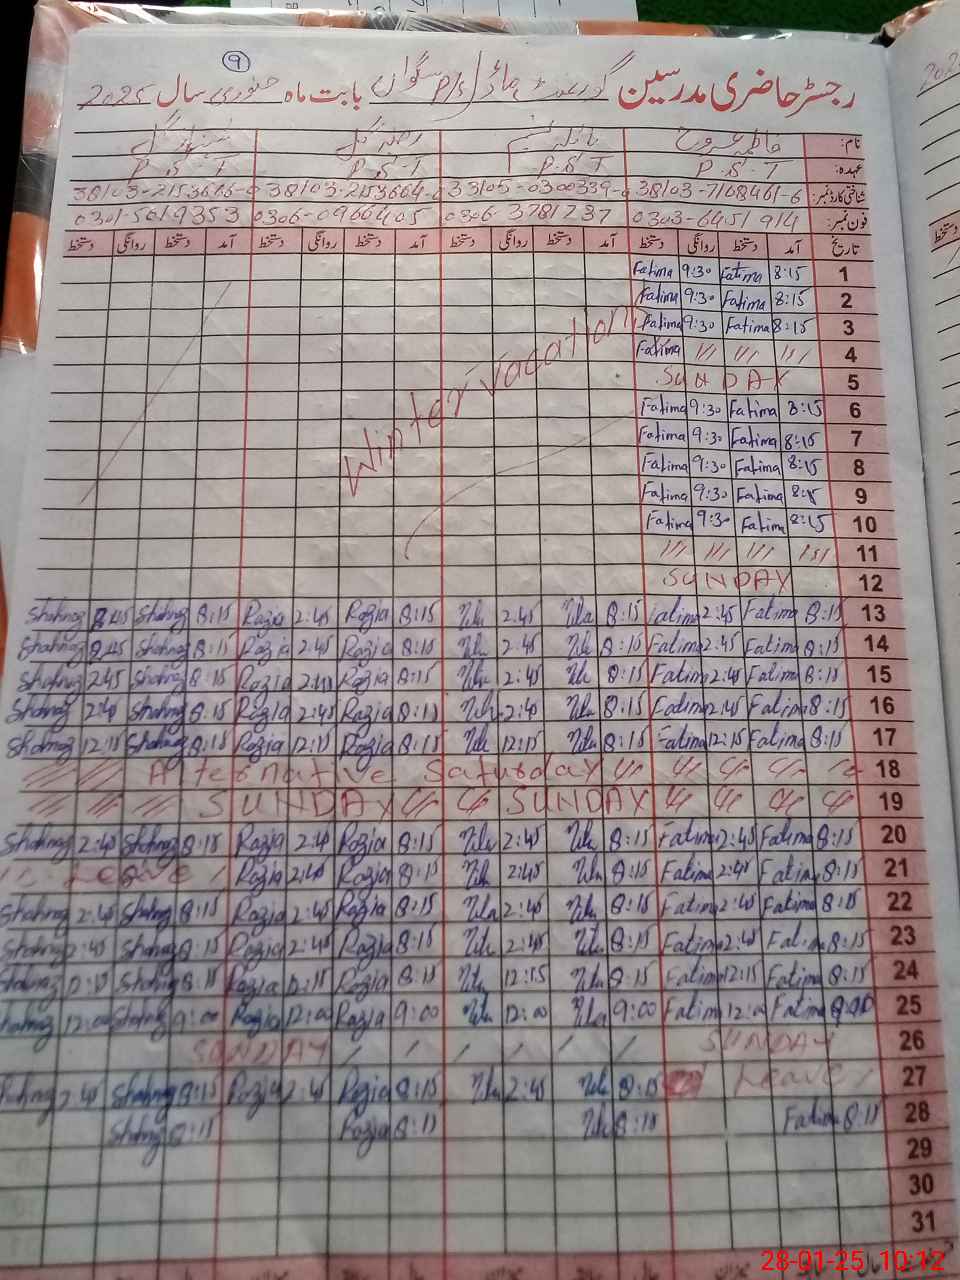 9
رجسٹر حاضری مدرسین گورنمنٹ ماڈل P/S بابت ماہ جنوری سال 2025
نام:
عہدہ: P.S.T P.S.T P.S.T P.S.T
شناختی کارڈ نمبر: 38103-7168461-6 33105-0300339- 38103-2153664- 38103-2153666-
فون نمبر: 0303-6451914 0306-3781237 0306-0966405 0301-5619353
تاریخ آمد دستخط روانگی دستخط آمد دستخط روانگی دستخط آمد دستخط روانگی دستخط آمد دستخط روانگی دستخط
Fatima 9:30 Fatima 8:15 1
Fatima 9:30 Fatima 8:15 2
Fatima 9:30 Fatima 8:15 3
Winter vacation
Fatima 4
SUNDAY 5
Fatima 9:30 Fatima 8:15 6
Fatima 9:30 Fatima 8:15 7
Fatima 9:30 Fatima 8:15 8
Fatima 9:30 Fatima 8:15 9
Fatima 9:30 Fatima 8:15 10
11
SUNDAY 12
Shahnaz 2:45 Shahnaz 8:15 Razia 2:45 Razia 8:15 2:45 8:15 Fatima 2:45 Fatima 8:15 13
Shahnaz 2:45 Shahnaz 8:15 Razia 2:45 Razia 8:15 2:45 8:15 Fatima 2:45 Fatima 8:15 14
Shahnaz 2:45 Shahnaz 8:15 Razia 2:45 Razia 8:15 2:45 8:15 Fatima 2:45 Fatima 8:15 15
Shahnaz 2:45 Shahnaz 8:15 Razia 2:45 Razia 8:15 2:45 8:15 Fatima 2:45 Fatima 8:15 16
Shahnaz 12:15 Shahnaz 8:15 Razia 12:15 Razia 8:15 12:15 8:15 Fatima 12:15 Fatima 8:15 17
Alternative Saturday 18
SUNDAY SUNDAY 19
Shahnaz 2:45 Shahnaz 8:15 Razia 2:45 Razia 8:15 2:45 8:15 Fatima 2:45 Fatima 8:15 20
Leave Razia 2:45 Razia 8:15 2:45 8:15 Fatima 2:45 Fatima 8:15 21
Shahnaz 2:45 Shahnaz 8:15 Razia 2:45 Razia 8:15 2:45 8:15 Fatima 2:45 Fatima 8:15 22
Shahnaz 2:45 Shahnaz 8:15 Razia 2:45 Razia 8:15 2:45 8:15 Fatima 2:45 Fatima 8:15 23
Shahnaz 12:15 Shahnaz 8:15 Razia 12:15 Razia 8:15 12:15 8:15 Fatima 12:15 Fatima 8:15 24
Shahnaz 12:00 Shahnaz 9:00 Razia 12:00 Razia 9:00 12:00 9:00 Fatima 12:00 Fatima 25
SUNDAY SUNDAY 26
Shahnaz 2:45 Shahnaz 8:15 Razia 2:45 Razia 8:15 2:45 8:15 Leave 27
Shahnaz 8:15 Razia 8:15 8:15 Fatima 8:15 28
29
30
31
28-01-25 10:12